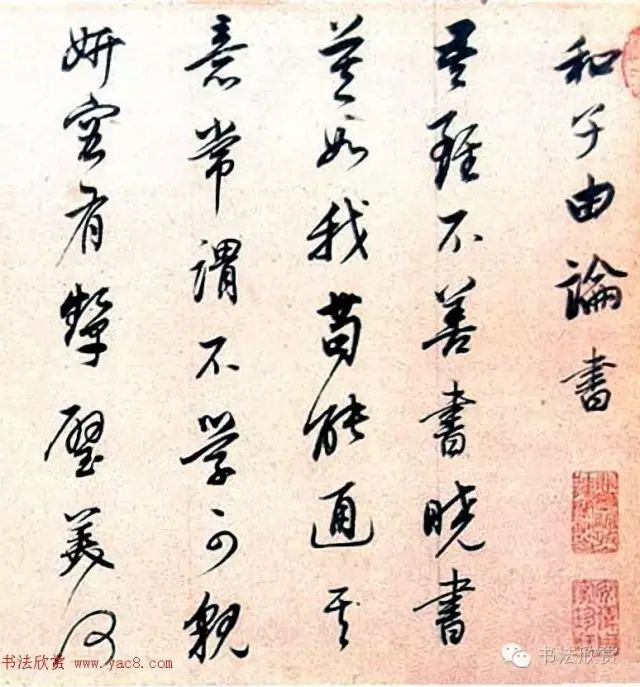 和子由論書
吾雖不善書曉書
莫如我苟能通其
意常謂不学可貌
妍容有顰璧美何
书法欣赏 www.yac8.com
书法欣赏